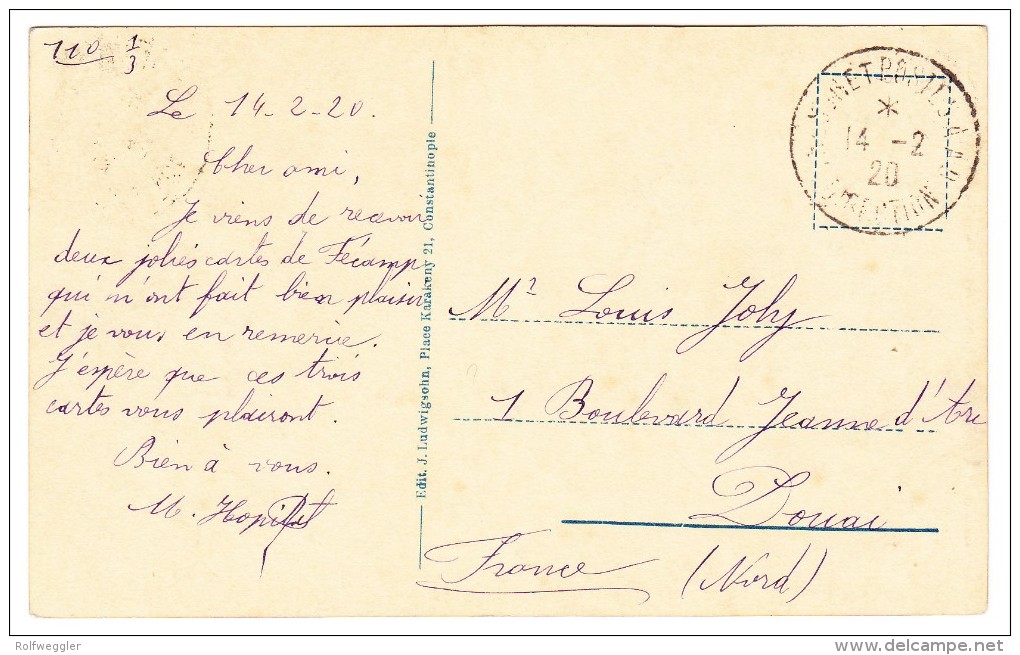 110 1/3
Le 14-2-20.
Cher ami,
Je viens de recevoir
deux jolies cartes de Fécamp
qui m'ont fait bien plaisir
et je vous en remercie.
J'espère que ces trois
cartes vous plairont.
Bien à vous.
M.
Edit. J. Ludwigsohn, Place Karakeuy 21, Constantinople
POSTES
*
14 -2
20
DIRECTION
Mr Louis Joly
1 Boulevard Jeanne d'Arc
Douai
France (Nord)
Rolfweggler
www.delcampe.net